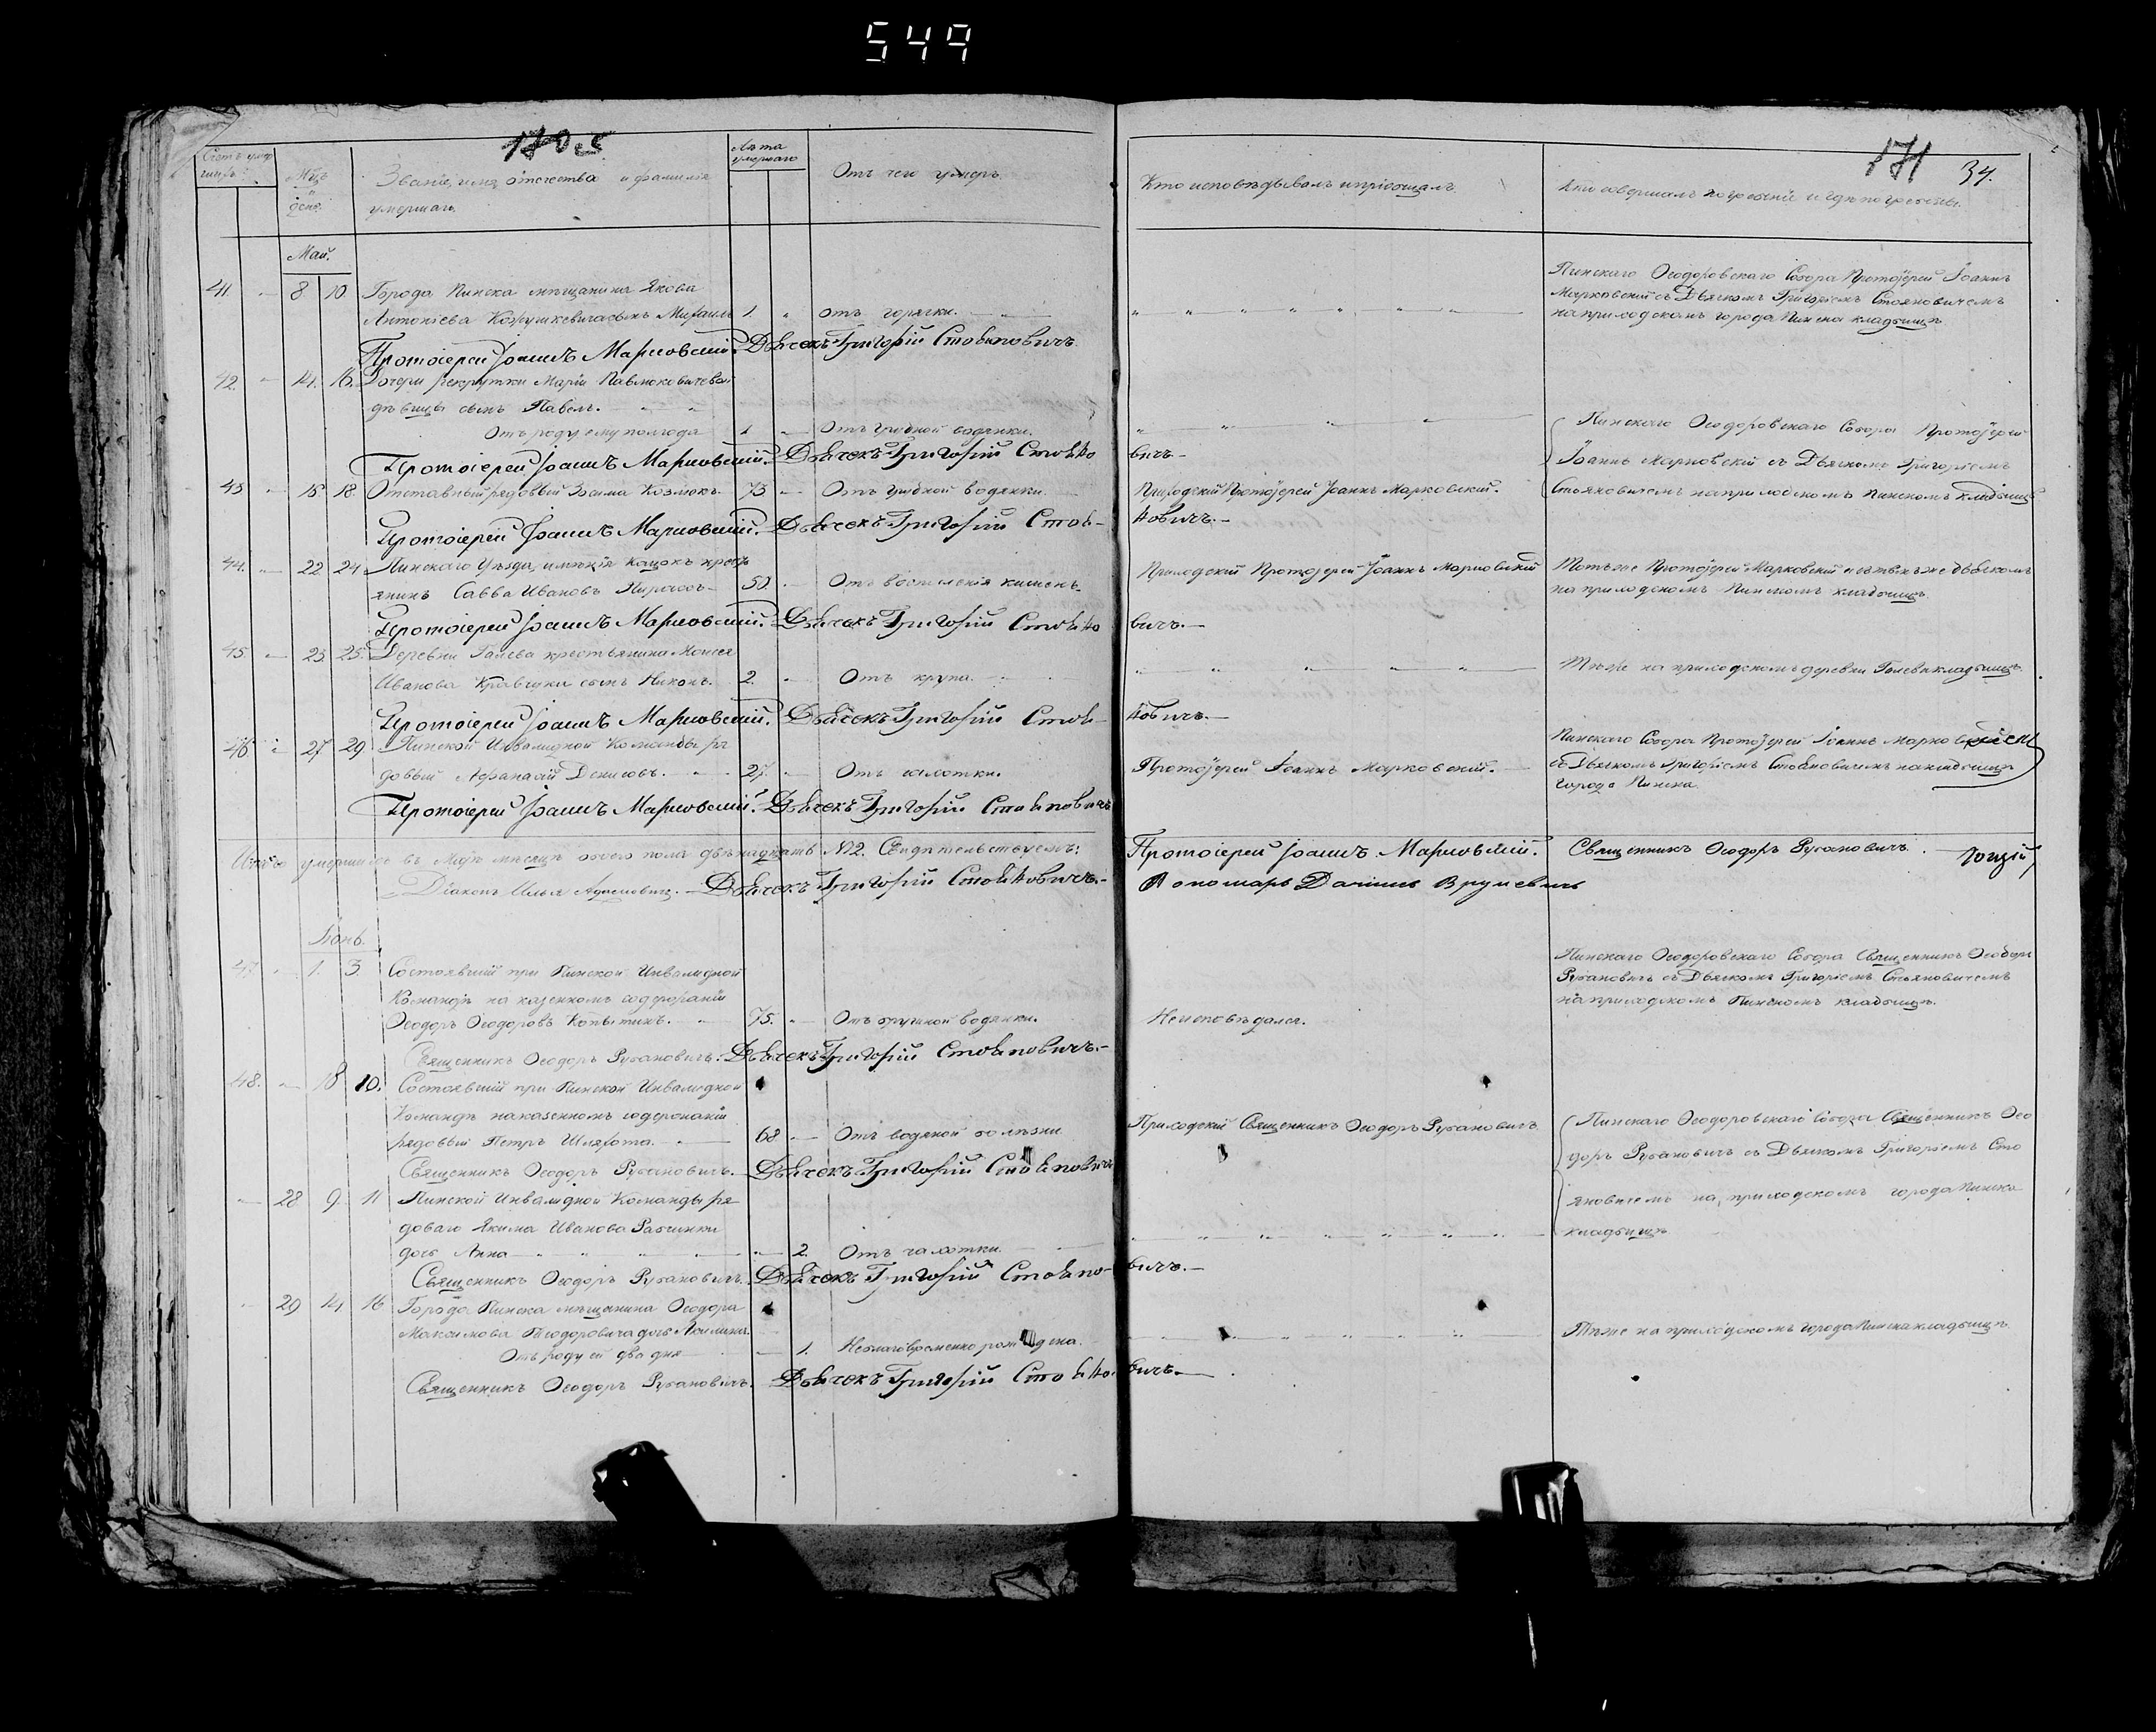 549
170
171
34.
Счетъ умершихъ
Мцъ и день.
Званіе, имя, отечество и фамилія умершаго.
Лѣта умершаго
Отъ чего умеръ.
Кто исповѣдывалъ и пріобщалъ
Кто совершалъ погребеніе и гдѣ погребены.
Май.
41. 8. 10. Города Пинска мѣщанина Якова
Антоніева сынъ Михаилъ 1. отъ горячки.
Пинскаго Ѳеодоровскаго Собора Протоіерей Іоаннъ
Марковскій съ Дьячкомъ Григоріемъ Стояновичемъ
на приходскомъ города Пинска кладбищѣ
Протоіерей Іоаннъ Марковскій. Дьячекъ Григорій Стояновичъ.
42. 14. 16. Дочери рекрутки Маріи
дѣвицы сынъ Павелъ.
Отъ роду ему полгода 1 Отъ грудной водянки.
Пинскаго Ѳеодоровскаго Собора Протоіерей
Іоаннъ Марковскій съ Дьячкомъ Григоріемъ
Стояновичемъ на приходскомъ Пинскомъ кладбищѣ
Протоіерей Іоаннъ Марковскій. Дьячекъ Григорій Стояновичъ.
43 18. Отставный рядовый Зосима Козлюкъ. 73 Отъ грудной водянки.
Приходскій Протоіерей Іоаннъ Марковскій.
Протоіерей Іоаннъ Марковскій. Дьячекъ Григорій Стояновичъ.
44. 22 24 Пинскаго Уѣзда, имѣнія крестьянинъ
Савва Ивановъ 50. Отъ воспаленія кишекъ.
Приходскій Протоіерей Іоаннъ Марковскій
Тотъ же Протоіерей Марковскій и съ тѣмъ же дьячкомъ
на приходскомъ Пинскомъ кладбищѣ
Протоіерей Іоаннъ Марковскій. Дьячекъ Григорій Стояновичъ.
45. 23. 25. Деревни Галева крестьянина Моисея
Иванова Кравчука сынъ Никонъ. 2. Отъ крупа.
Тѣже на приходскомъ деревни Галева кладбищѣ.
Протоіерей Іоаннъ Марковскій. Дьячекъ Григорій Стояновичъ.
46 27 29 Пинской Инвалидной Команды рядовый
Аѳанасій Денисовъ. 27. Отъ чахотки.
Протоіерей Іоаннъ Марковскій.
Пинскаго Собора Протоіерей Іоаннъ Марковскій
съ Дьячкомъ Григоріемъ Стояновичемъ на кладбищѣ
города Пинска.
Протоіерей Іоаннъ Марковскій. Дьячекъ Григорій Стояновичъ
Итого умершихъ въ Маѣ мѣсяцѣ обоего пола двѣнадцать №12. Свидѣтельствуемъ:
Протоіерей Іоаннъ Марковскій. Священникъ Ѳеодоръ Рубановичъ.
Діаконъ Илья Дьячекъ Григорій Стояновичъ.
Пономарь
Іюнь.
47. 1. 3. Состоявшій при Пинской Инвалидной
Командѣ на казенномъ содержаніи
Ѳеодоръ Ѳеодоровъ Копытикъ. 75. Отъ грудной водянки.
Неисповѣдался.
Пинскаго Ѳеодоровскаго Собора Священникъ Ѳеодоръ
Рубановичъ съ Дьячкомъ Григоріемъ Стояновичемъ
на приходскомъ Пинскомъ кладбищѣ.
Священникъ Ѳеодоръ Рубановичъ. Дьячекъ Григорій Стояновичъ.
48. 10. Состоявшій при Пинской Инвалидной
Командѣ на казенномъ содержаніи
рядовый Петръ Шляхота. 68 Отъ водяной болѣзни
Приходскій Священникъ Ѳеодоръ Рубановичъ
Пинскаго Ѳеодоровскаго Собора Священникъ Ѳео
доръ Рубановичъ съ Дьячкомъ Григоріемъ Сто
яновичемъ на приходскомъ города Пинска
кладбищѣ
Священникъ Ѳеодоръ Рубановичъ. Дьячекъ Григорій Стояновичъ
28 9 11 Пинской Инвалидной Команды ря
доваго Якима Иванова
дочь Анна 2. Отъ чахотки.
Священникъ Ѳеодоръ Рубановичъ. Дьячекъ Григорій Стояновичъ.
29 14 16 Города Пинска мѣщанина Ѳеодора
Максимова дочь
Отъ роду ей два дня 1. Неблаговременно рождена.
Тѣже на приходскомъ города Пинска кладбищѣ.
Священникъ Ѳеодоръ Рубановичъ. Дьячекъ Григорій Стояновичъ.